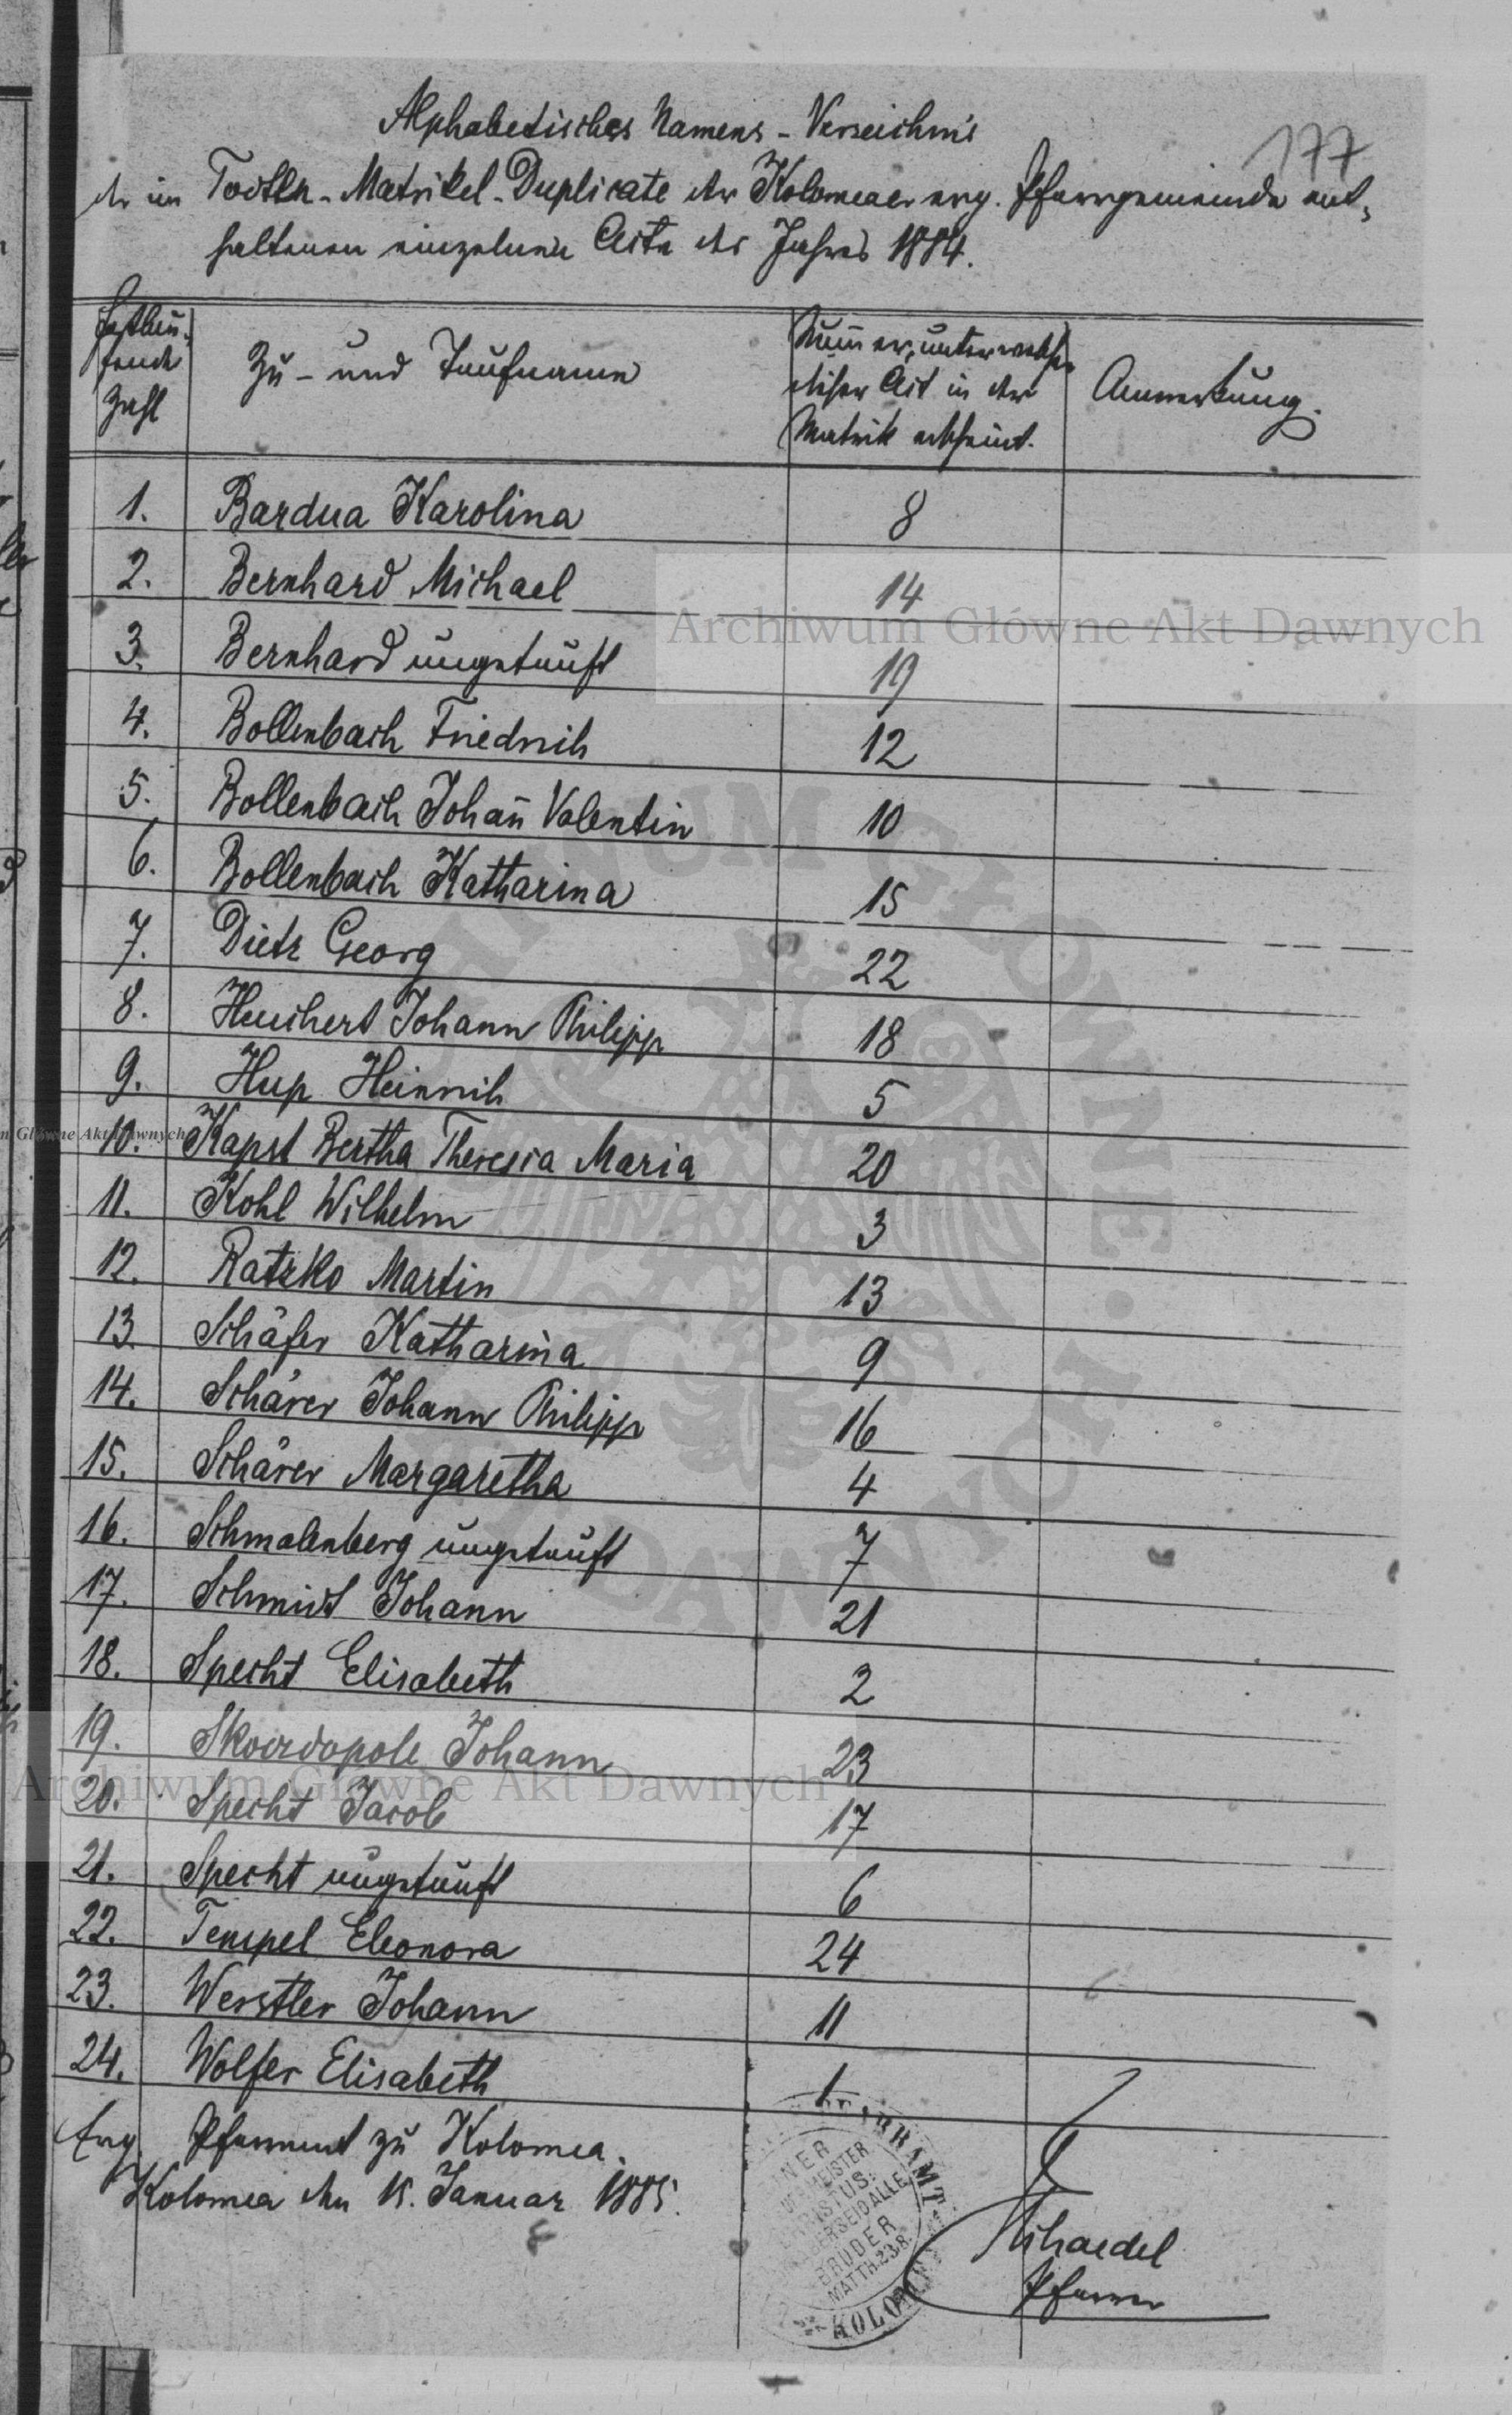 177
Alphabetisches Namens-Verzeichnis
der im Todten-Matrikel-Duplicate der Kolomeaer evng. Pfarrgemeinde ent-
haltenen einzelnen Acte des Jahres 1884.
Fortlau-
fende
Zahl
Zu- und Taufname
Num̄er, unter welcher
dieser Act in der
Matrik erscheint.
Anmerkung.
1. Bardua Karolina 8
2. Bernhard Michael 14
3. Bernhard ungetauft 19
4. Bollenbach Friedrich 12
5. Bollenbach Johan̄ Valentin 10
6. Bollenbach Katharina 15
7. Dietz Georg 22
8. Heuchert Johann Philipp 18
9. Hup Heinrich 5
10. Kapst Bertha Theresia Maria 20
11. Kohl Wilhelm 3
12. Ratzko Martin 13
13. Schäfer Katharina 9
14. Schärer Johann Philipp 16
15. Schärer Margaretha 4
16. Schmalenberg ungetauft 7
17. Schmidt Johann 21
18. Specht Elisabeth 2
19. Skordopole Johann 23
20. Specht Jacob 17
21. Specht ungetauft 6
22. Tempel Eleonora 24
23. Werstler Johann 11
24. Wolfer Elisabeth 1
Evng. Pfarramt zu Kolomea.
Kolomea den 15. Januar 1885.
Schaedel
Pfarrer
EINER
MEISTER
CHRISTUS.
IHR ABER SEID ALLE
BRÜDER
MATTH. 23.8.
PFARRAMT
KOLOMEA
Archiwum Główne Akt Dawnych
Archiwum Główne Akt Dawnych
Główne Akt Dawnych
ARCHIWUM GŁÓWNE AKT DAWNYCH